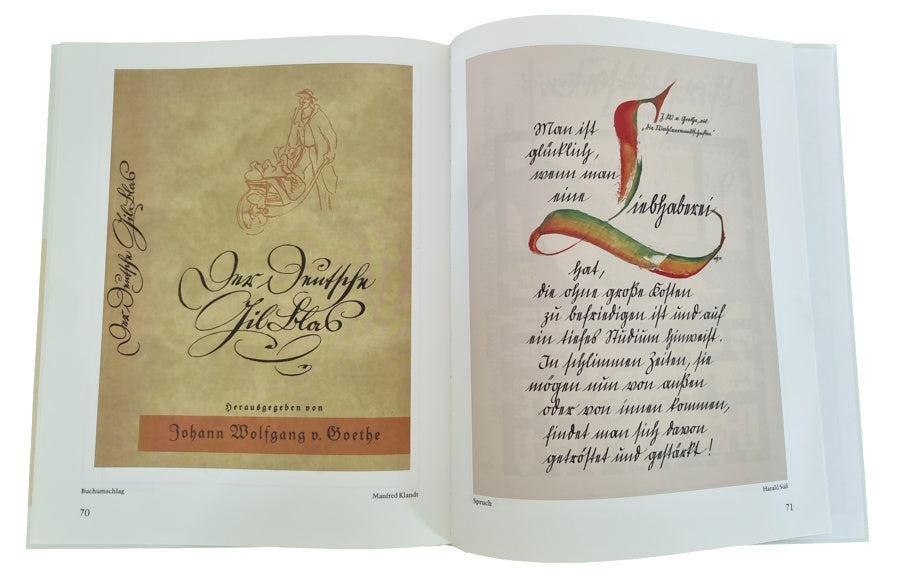 Der Deutsche Gil Blas
Der Deutsche
Gil Blas
Herausgegeben von
Johann Wolfgang v. Goethe
Buchumschlag
Manfred Klandt
70
J. W. v. Goethe, aus:
„Die Wahlverwandtschaften“
Man ist
glücklich,
wenn man
eine
Liebhaberei
hat,
die ohne große Kosten
zu befriedigen ist und auf
ein tiefes Studium hinweist.
In schlimmen Zeiten, sie
mögen nun von außen
oder von innen kommen,
findet man sich davon
getröstet und gestärkt!
Spruch
Harald Süß
71